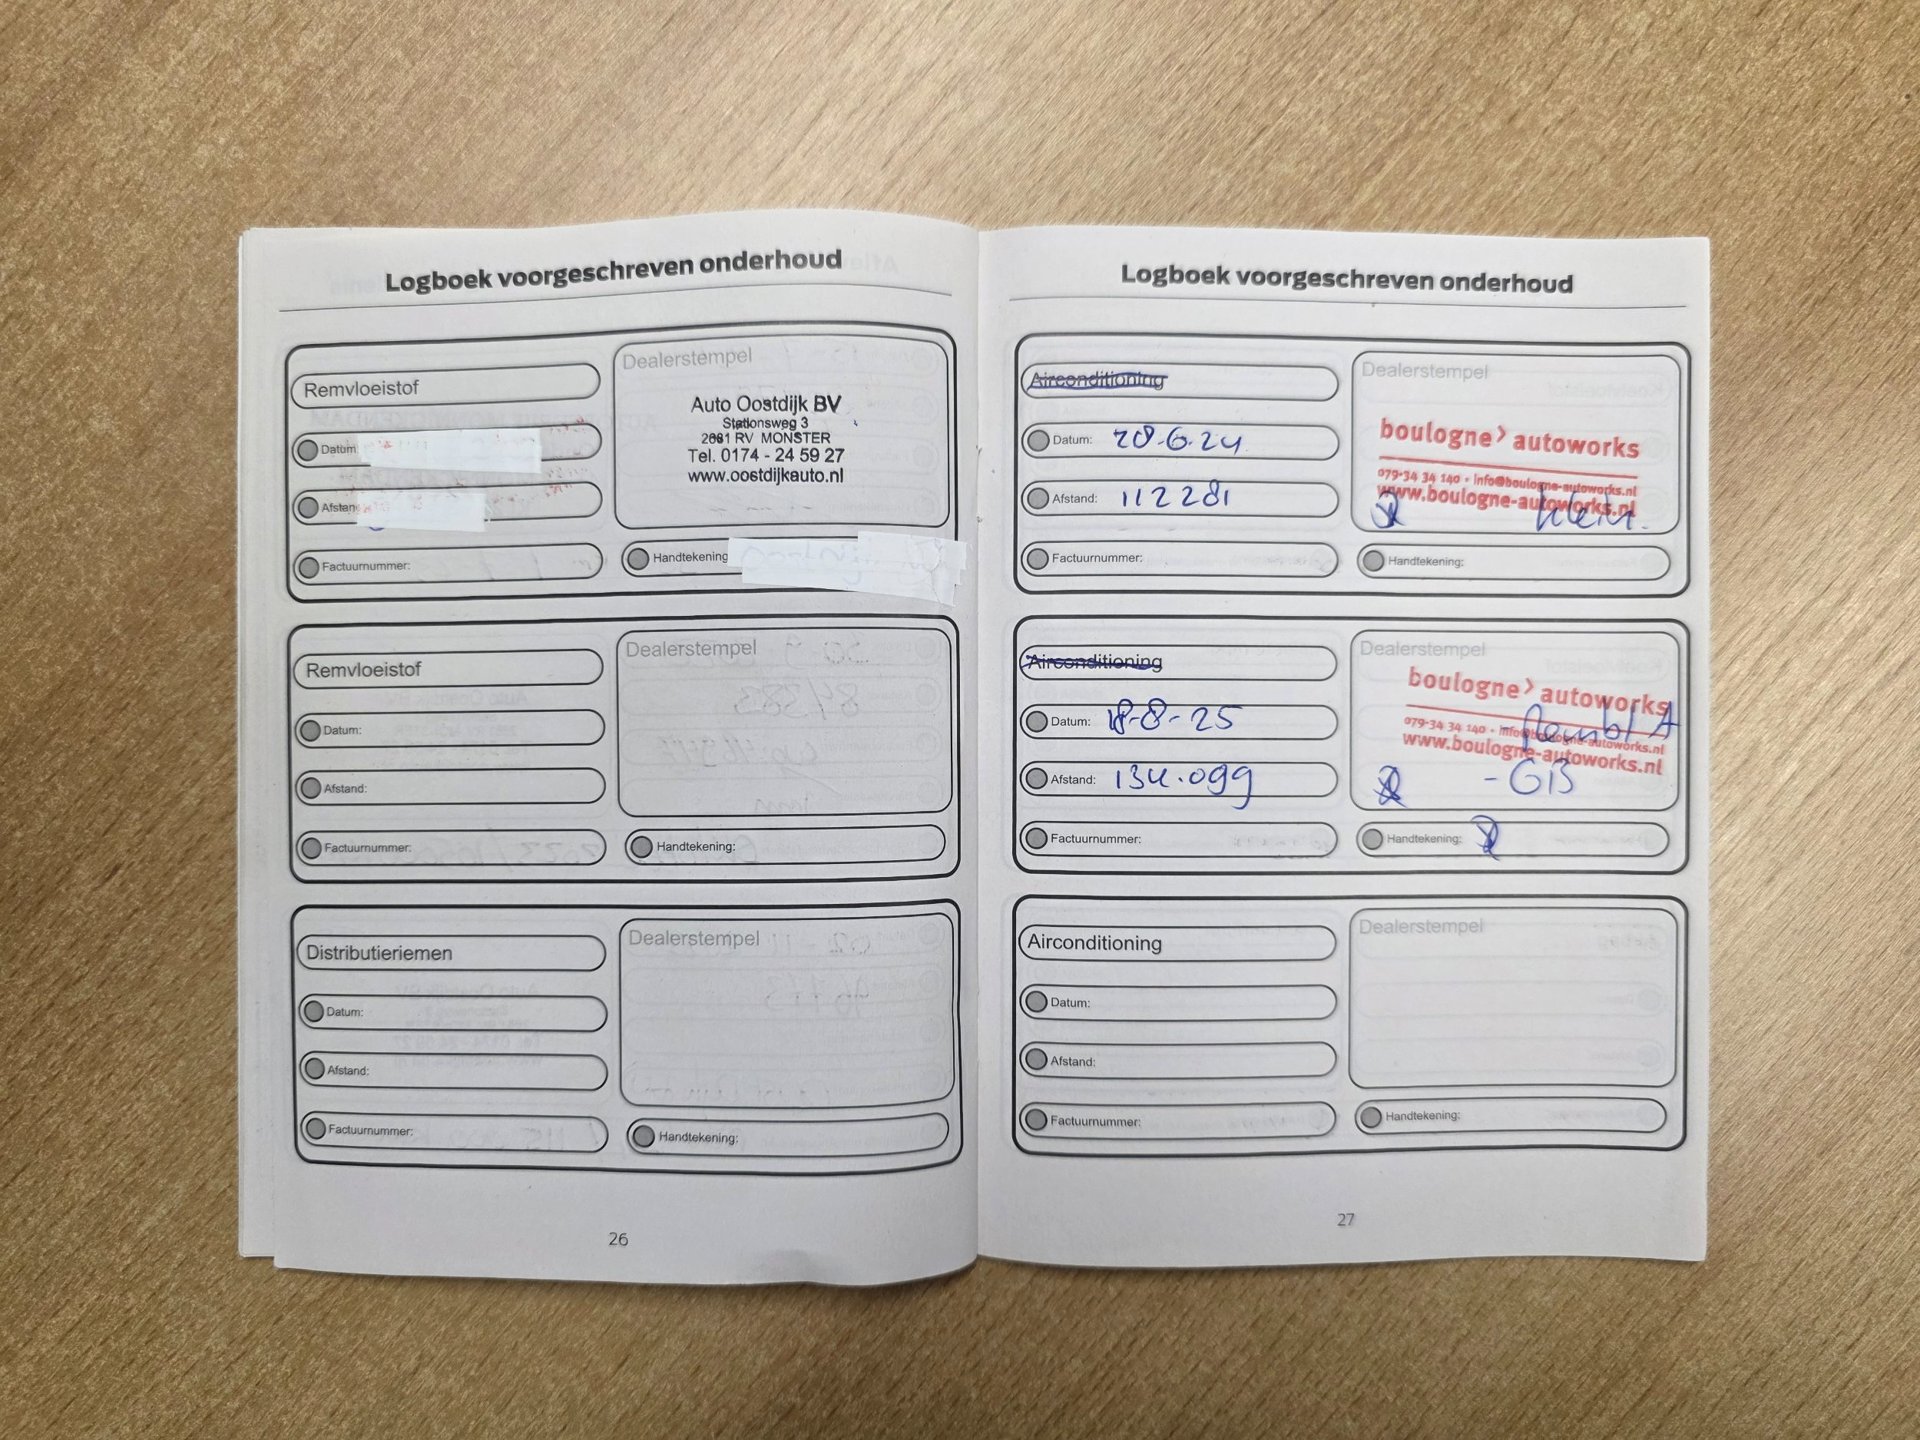 Logboek voorgeschreven onderhoud
Remvloeistof
Datum:
Afstand
Factuurnummer:
Dealerstempel
Auto Oostdijk BV
Stationsweg 3
2681 RV MONSTER
Tel. 0174 - 24 59 27
www.oostdijkauto.nl
Handtekening
Remvloeistof
Datum:
Afstand:
Factuurnummer:
Dealerstempel
Handtekening:
Distributieriemen
Datum:
Afstand:
Factuurnummer:
Dealerstempel
Handtekening:
26
Logboek voorgeschreven onderhoud
Airconditioning
Datum: 28-6-24
Afstand: 112281
Factuurnummer:
Dealerstempel
boulogne> autoworks
079-34 34 140 • info@boulogne-autoworks.nl
www.boulogne-autoworks.nl
klein.
Handtekening:
Airconditioning
Datum: 18-8-25
Afstand: 134.099
Factuurnummer:
Dealerstempel
boulogne> autoworks
079-34 34 140 • info@boulogne-autoworks.nl
www.boulogne-autoworks.nl
- GB
Handtekening:
Airconditioning
Datum:
Afstand:
Factuurnummer:
Dealerstempel
Handtekening:
27